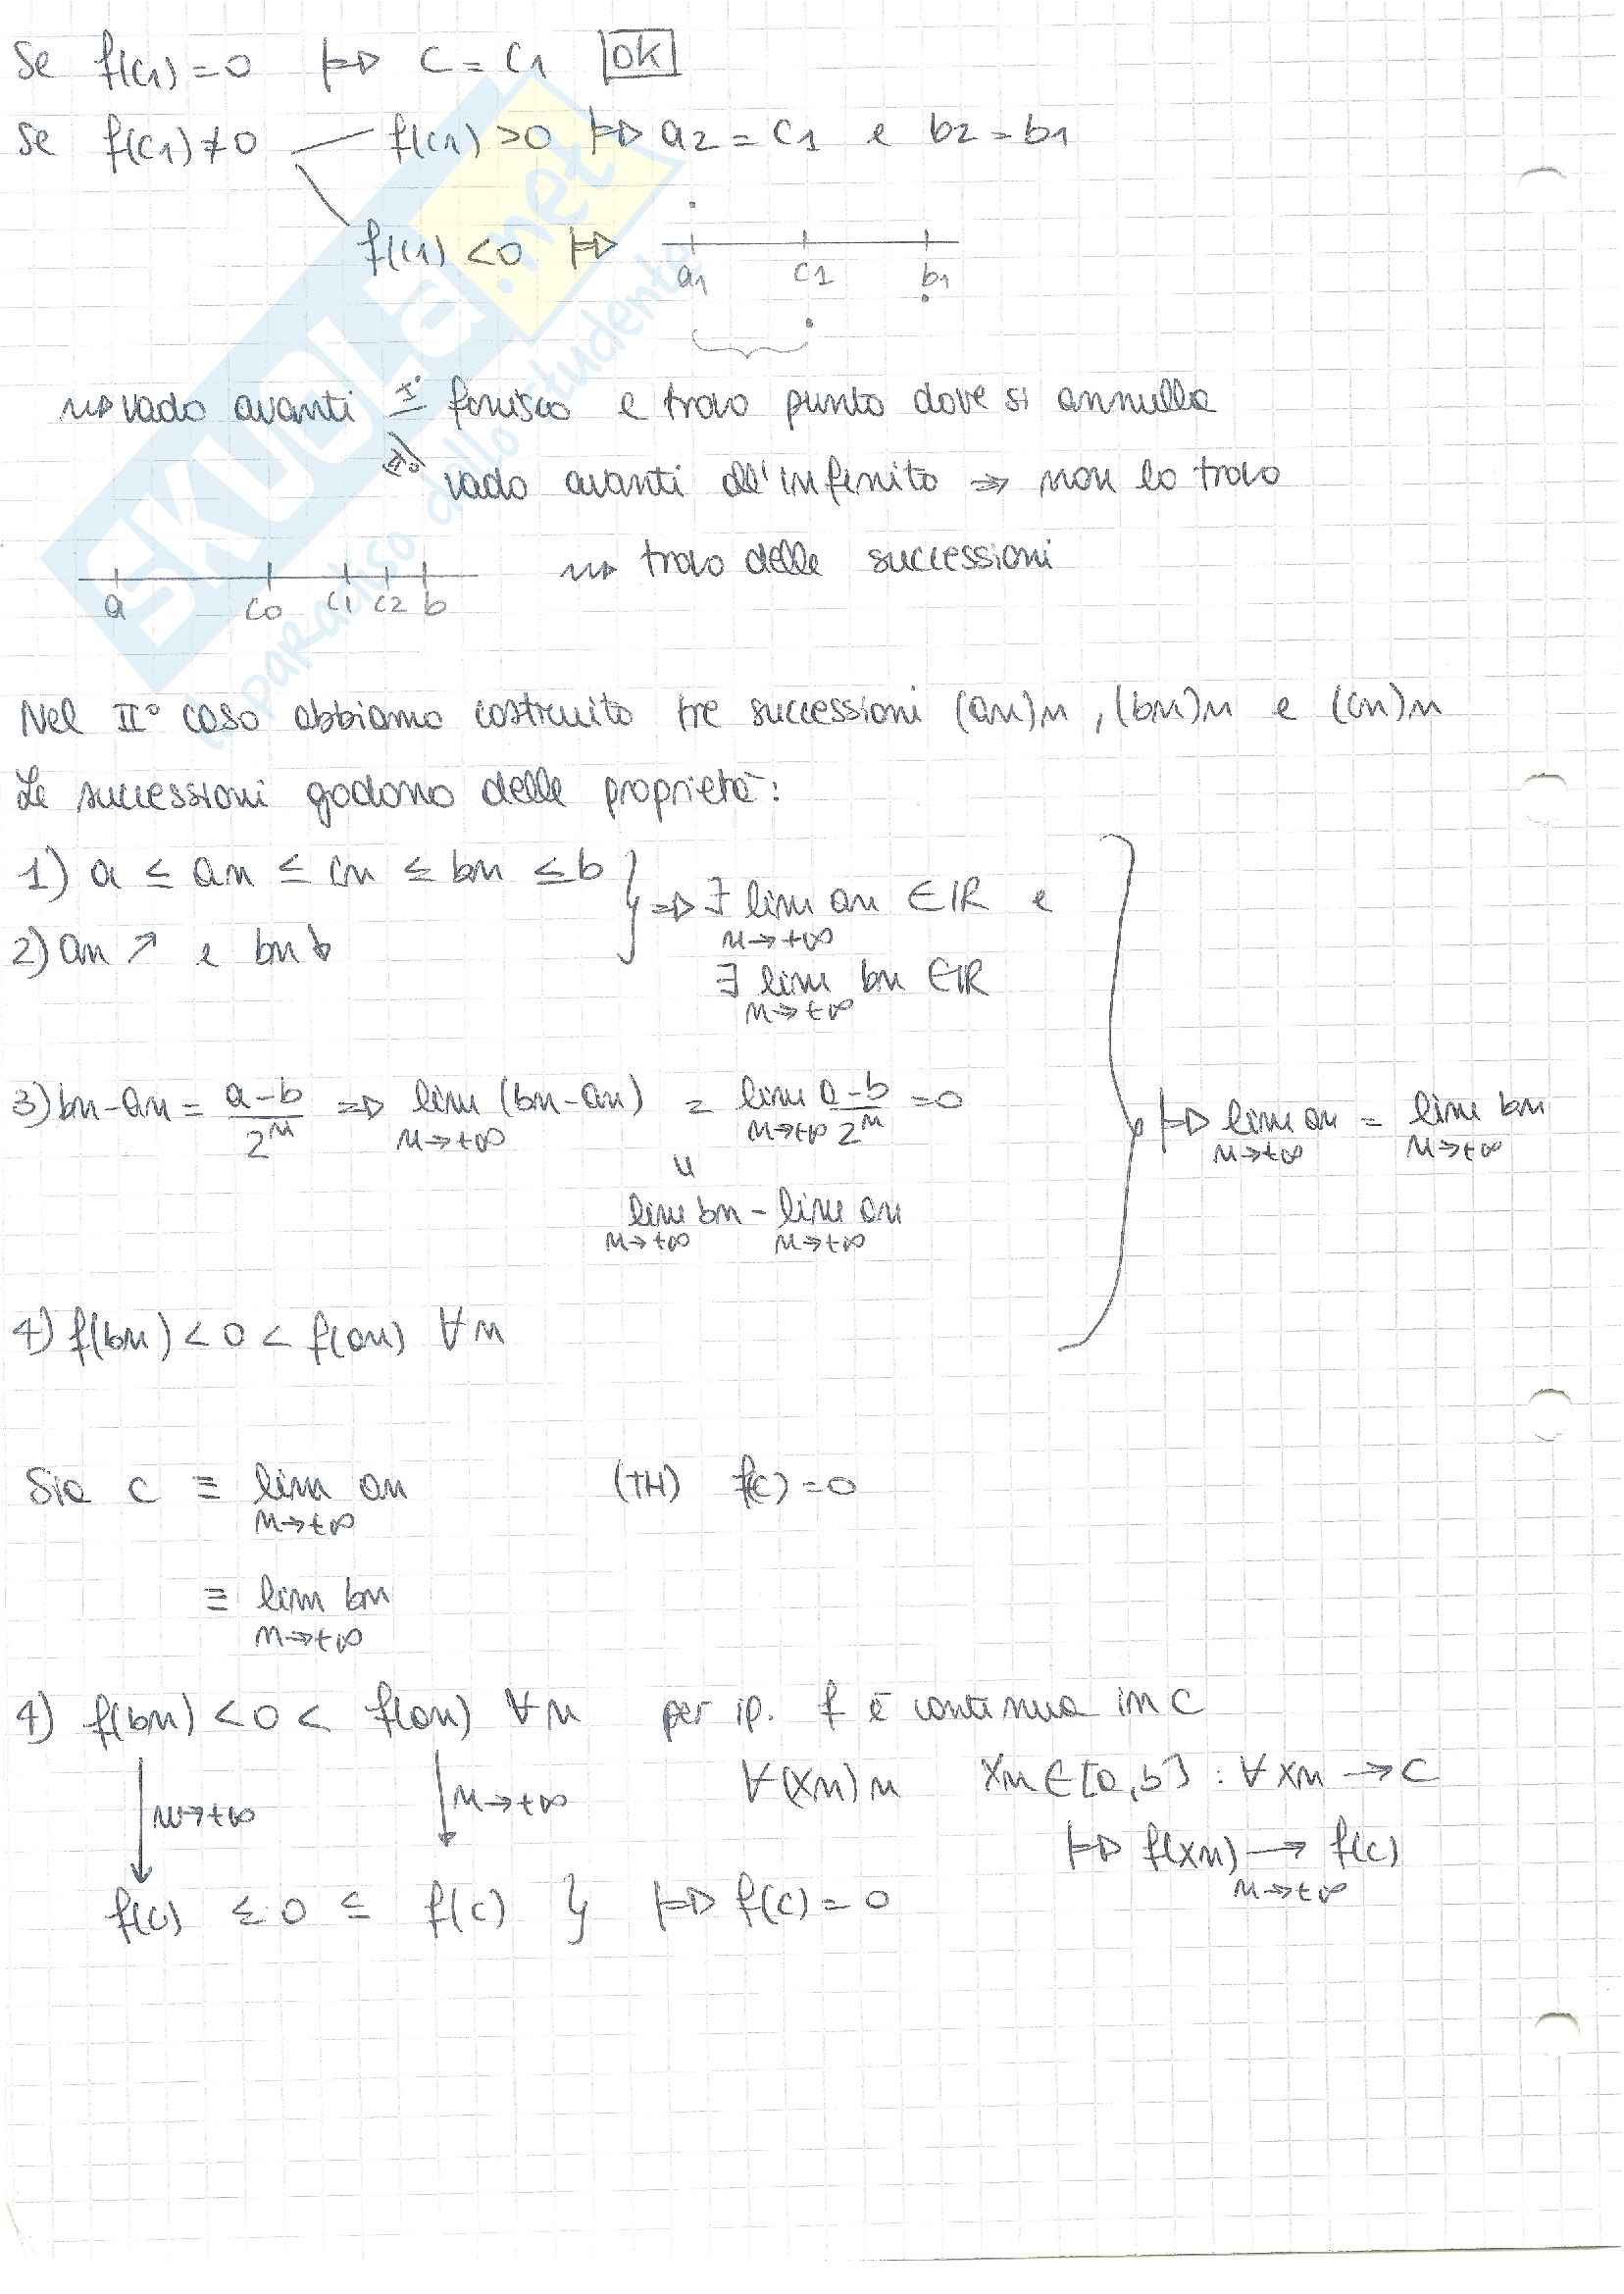 Se f(c1)=0 |=> c = c1 OK
Se f(c1)≠0 f(c1) >0 |=> a2 = c1 e b2 = b1
f(c1) <0 |=>
a1 c1 b1
~> vado avanti I° finisco e trovo punto dove si annulla
II° vado avanti all'infinito => non lo trovo
a c0 c1 c2 b ~> trovo delle successioni
Nel II° caso abbiamo costruito tre successioni (an)n , (bn)n e (cn)n
Le successioni godono delle proprietà:
1) a ≤ an ≤ cn ≤ bn ≤ b
2) an ↗ e bn ↓
} => ∃ lim an ∈ IR e
n→+∞
∃ lim bn ∈ IR
n→+∞
3) bn-an = a-b/2^n => lim (bn-an) = lim a-b/2^n = 0
n→+∞ n→+∞
} |=> lim an = lim bn
n→+∞ n→+∞
lim bn - lim an
n→+∞ n→+∞
4) f(bn) < 0 < f(an) ∀n
Sia c ≡ lim an (TH) f(c) = 0
n→+∞
≡ lim bn
n→+∞
4) f(bn) < 0 < f(an) ∀n per ip. f è continua in c
n→+∞ n→+∞ ∀(xn)n xn ∈ [a,b] : ∀ xn → c
|=> f(xn) → f(c)
n→+∞
f(c) ≤ 0 ≤ f(c) } |=> f(c) = 0
SKUOLA.net
il paradiso dello studente